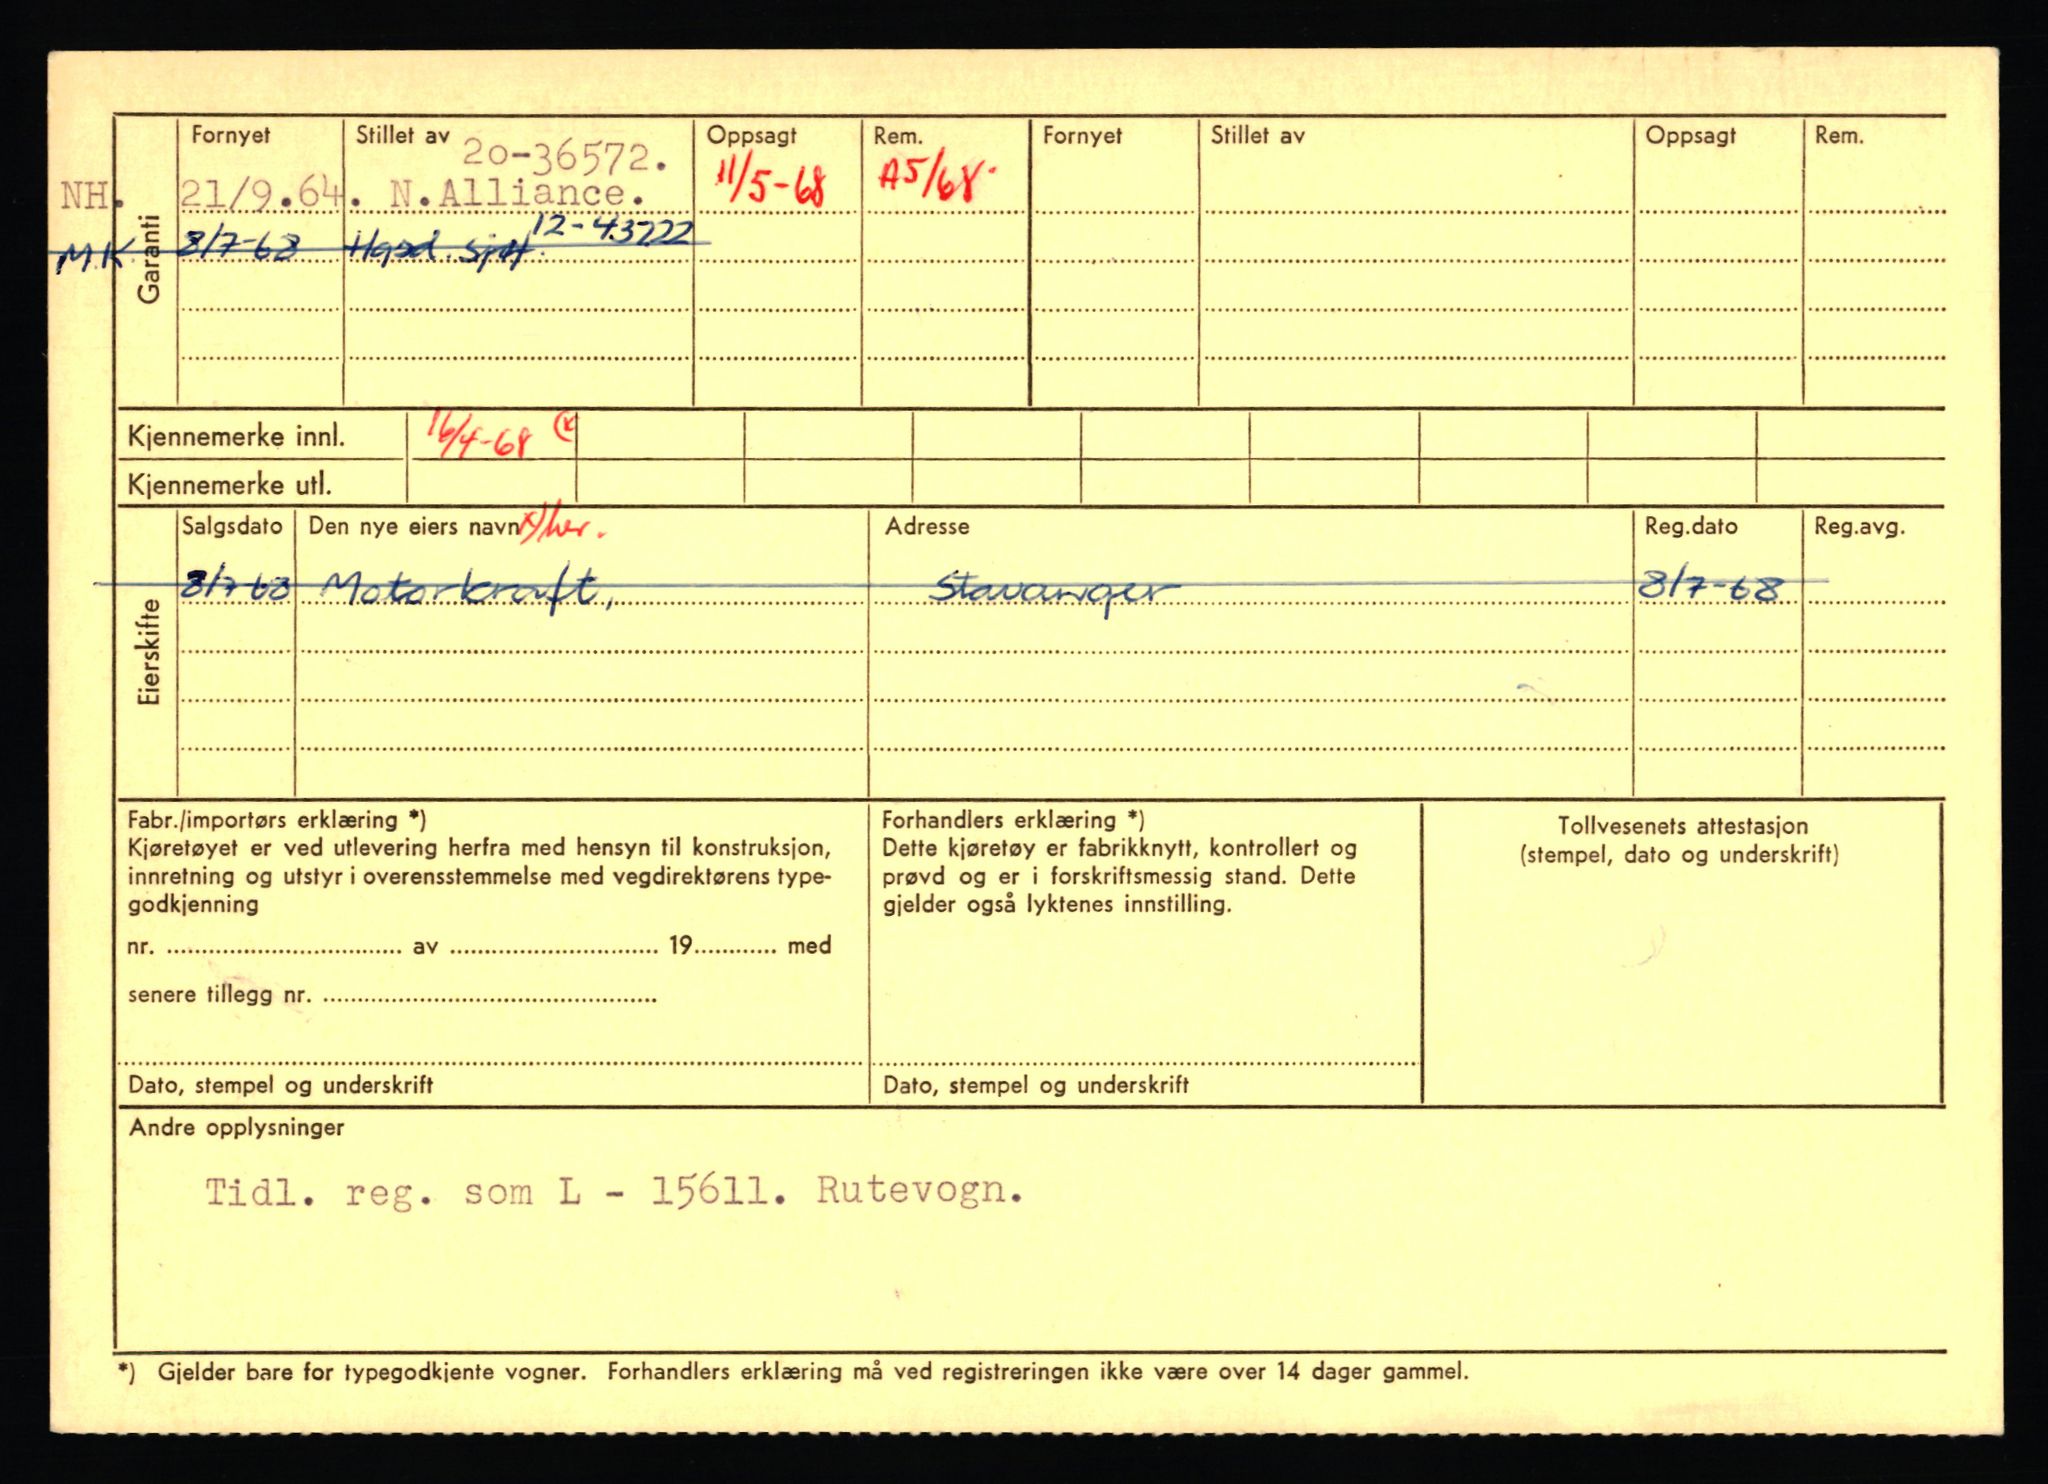 Fornyet Stillet av Oppsagt Rem. Fornyet Stillet av Oppsagt Rem.
20-36572.
NH. 21/9.64. N.Alliance. 11/5-68 A5/68.
12-43722
MK 8/7-68
Garanti
Kjennemerke innl. 16/4-68 (x
Kjennemerke utl.
Salgsdato Den nye eiers navn x) her. Adresse Reg.dato Reg.avg.
8/7-68 Motorkraft, Stavanger 8/7-68
Eierskifte
Fabr./importørs erklæring *)
Kjøretøyet er ved utlevering herfra med hensyn til konstruksjon,
innretning og utstyr i overensstemmelse med vegdirektørens type-
godkjenning
nr. .................... av .................... 19............ med
senere tillegg nr. ....................
Dato, stempel og underskrift
Forhandlers erklæring *)
Dette kjøretøy er fabrikknytt, kontrollert og
prøvd og er i forskriftsmessig stand. Dette
gjelder også lyktenes innstilling.
Dato, stempel og underskrift
Tollvesenets attestasjon
(stempel, dato og underskrift)
Andre opplysninger
Tidl. reg. som L - 15611. Rutevogn.
*) Gjelder bare for typegodkjente vogner. Forhandlers erklæring må ved registreringen ikke være over 14 dager gammel.